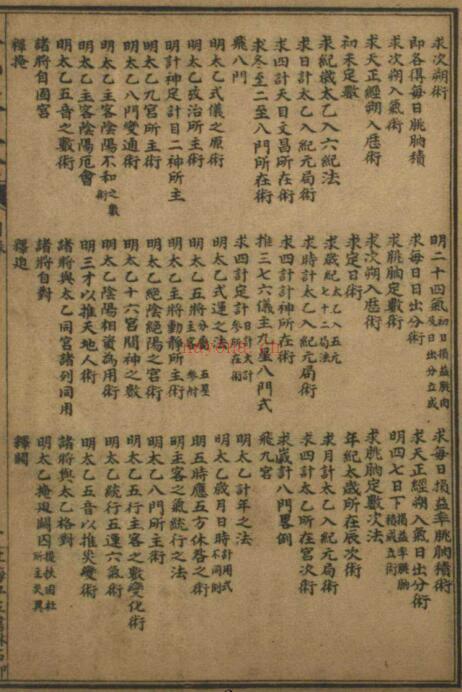 求次朔術
明二十四氣初日損益朓朒及日出分立成
求每日損益率朓朒積術
即各得每日朓朒積
求每日日出分術
求天正經朔入氣日出分術
求次朔入氣術
求朓朒定數術
明四七日下損益率朓朒
求天正經朔入曆術
求次朔入曆術
求朓朒定數次法
初末定數
求定日術
年紀太歲所在辰次術
求紀歲太乙入六紀法
求歲紀太乙入五元七十二局法
求月計太乙入紀元局術
求日計太乙入紀元局術
求時計太乙入紀元局術
求四計太乙所在宮次術
求四計天目文昌所在術
求四計計神所在術
求歲計八門畧倒
求冬至二至八門所在術
推三七六儀主九星八門式
飛九宮
飛八門
求四計定計
明太乙計年之法
明太乙式儀之原術
明太乙式運之法
明太乙歲月日時計用式不同附
明太乙攻治所主術
明太乙五將
明五時應五方休咎之術
明計神定計目二神所主
明太乙主將動靜所主術
明主客之氣統行之法
明太乙九宮所主術
明太乙絕陰絕陽之宮術
明太乙八門所主術
明太乙八門變通術
明太乙十六宮間神之數
明太乙五行主客之數變化術
明太乙主客陰陽不和之數術
明太乙陰陽相資為用術
明太乙統行五運六氣術
明太乙主客陰陽厄會
明三才以推天地人術
明太乙五音以推災變術
明太乙五音之數術
諸將與太乙同宮諸列同用
諸將與太乙格對
諸將自囚宮
諸將自對
明太乙掩迫關囚挾扶囚杜所主災異
釋掩
釋迫
釋關